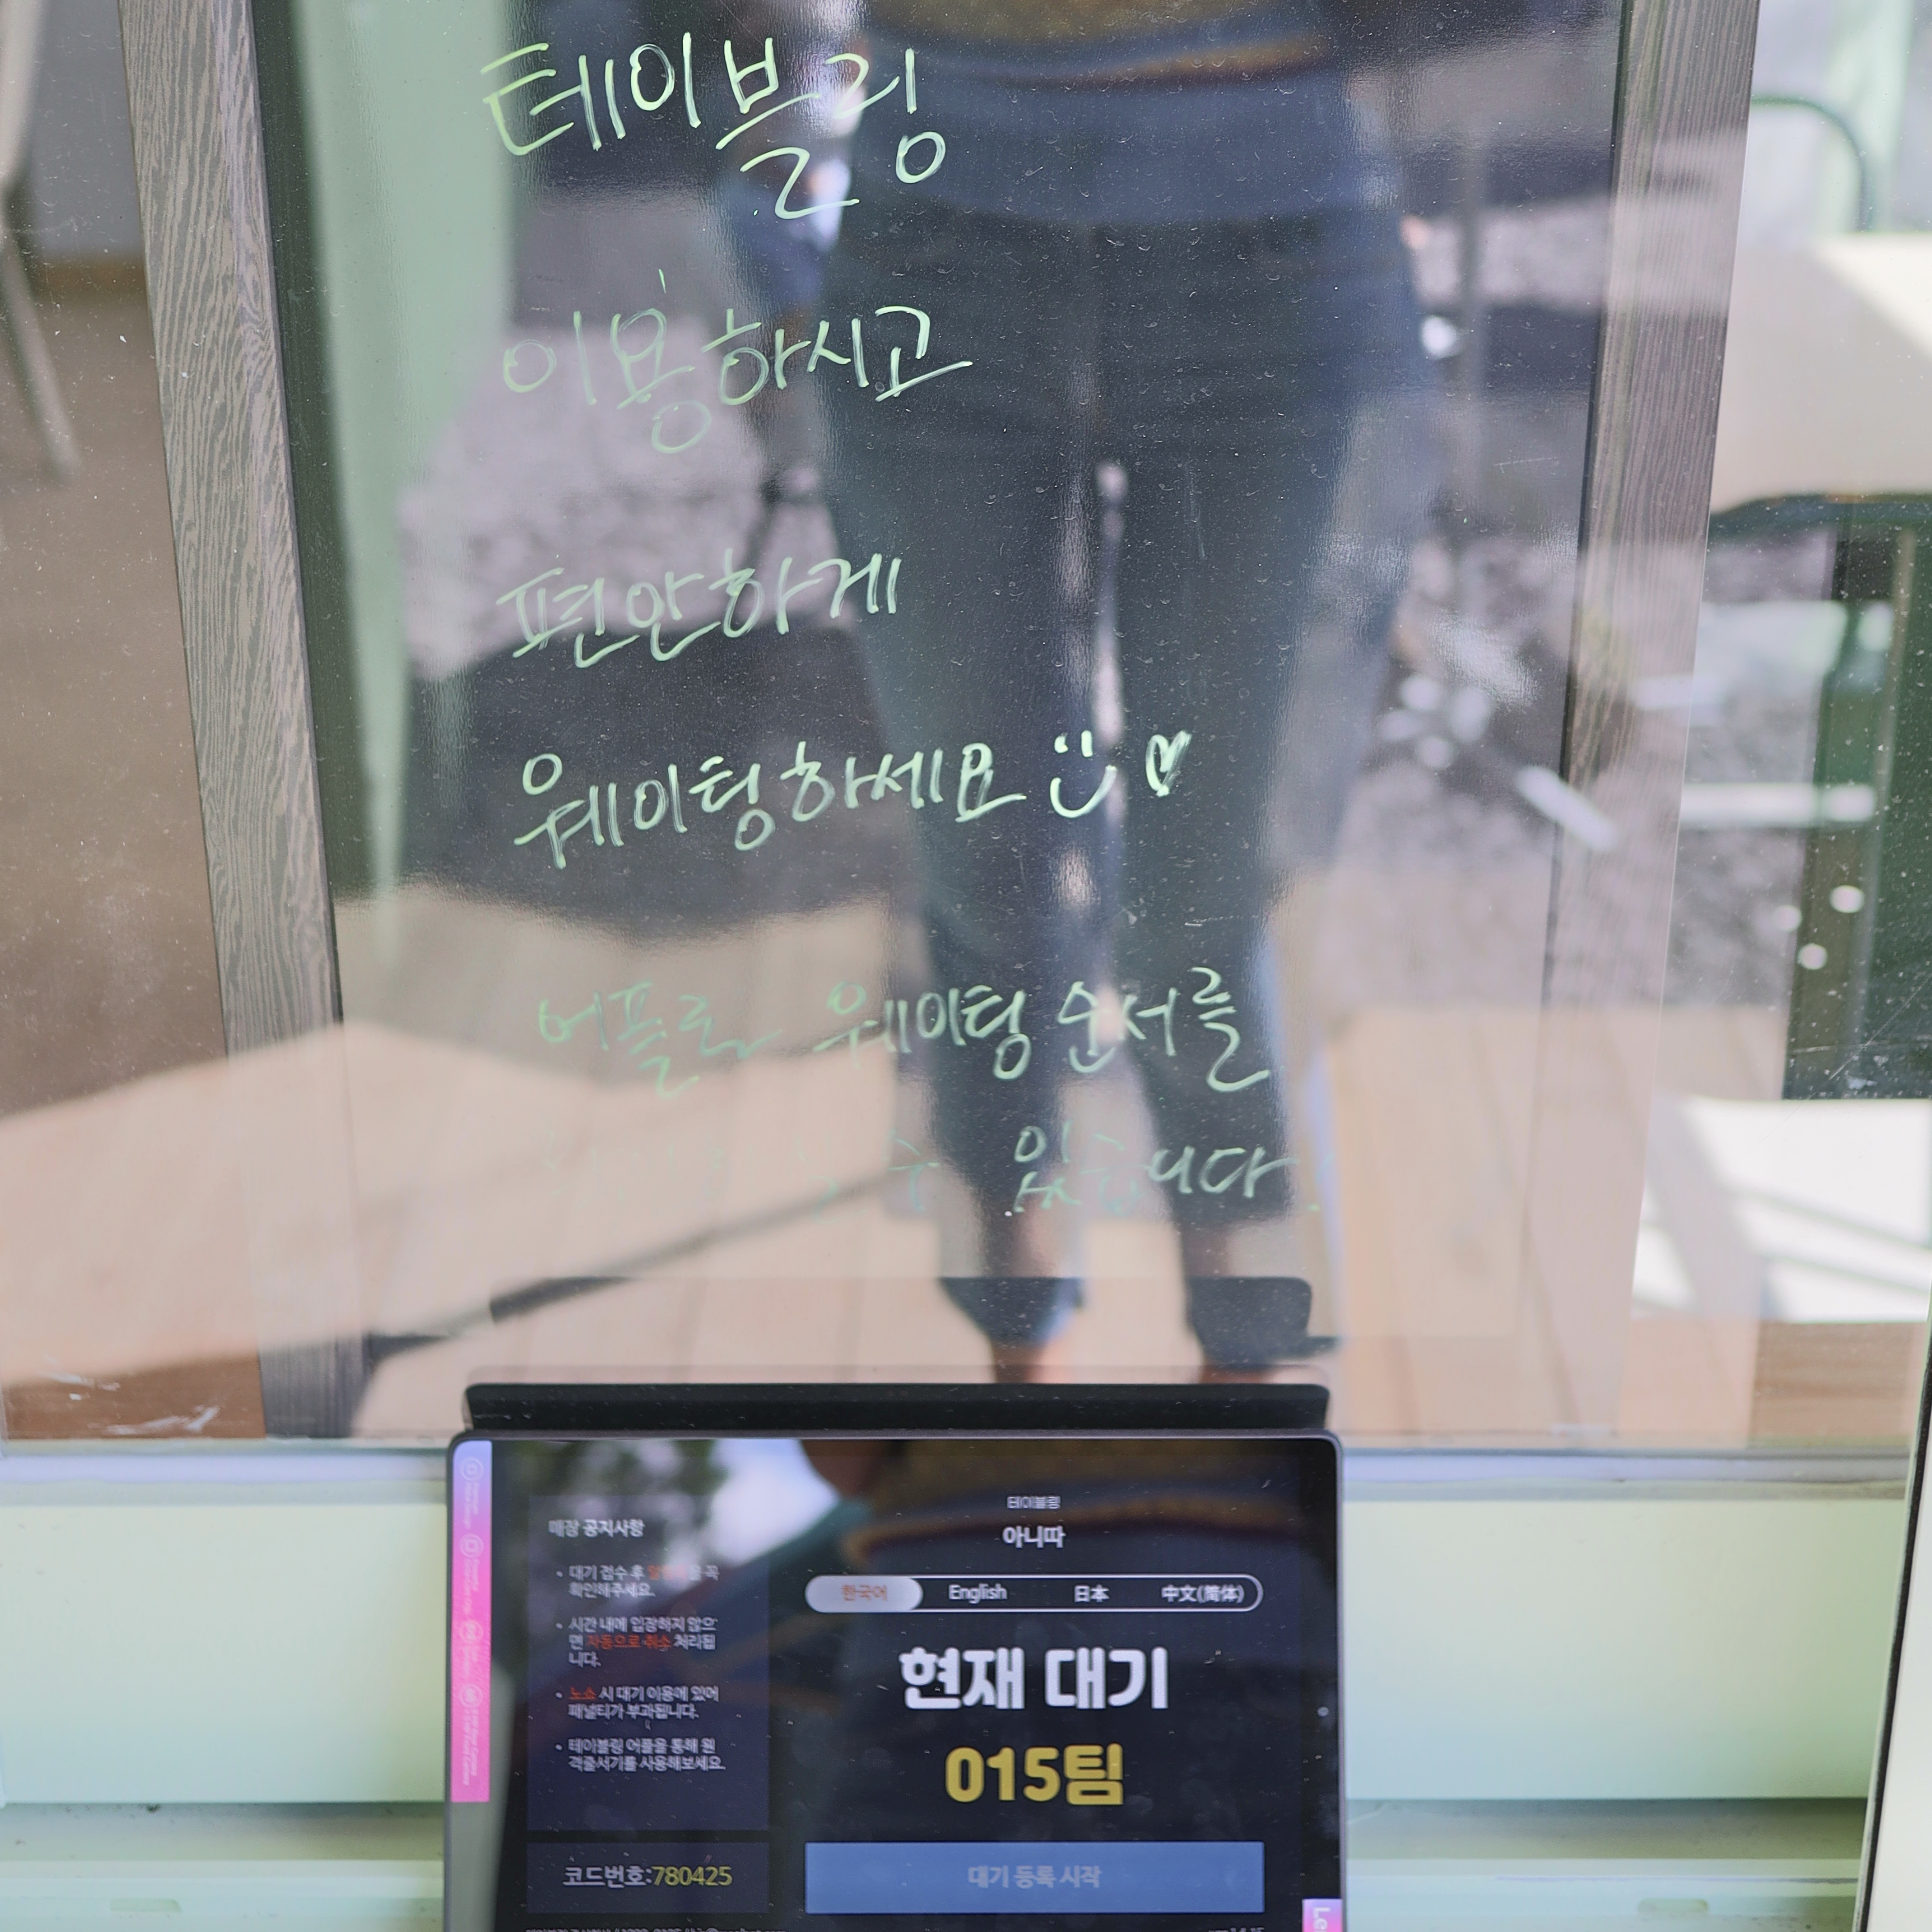 테이블링
이용하시고
편안하게
웨이팅하세요
어플로 웨이팅 순서를
수 있습니다
테이블링
아니따
한국어 English 日本 中文(简体)
현재 대기
015팀
대기 등록 시작
매장 공지사항
• 대기 접수 후 꼭
확인해주세요.
• 시간 내에 입장하지 않으
면 자동으로 취소 처리됩
니다.
• 노쇼 시 대기 이용에 있어
패널티가 부과됩니다.
• 테이블링 어플을 통해 원
격줄서기를 사용해보세요.
코드번호:780425